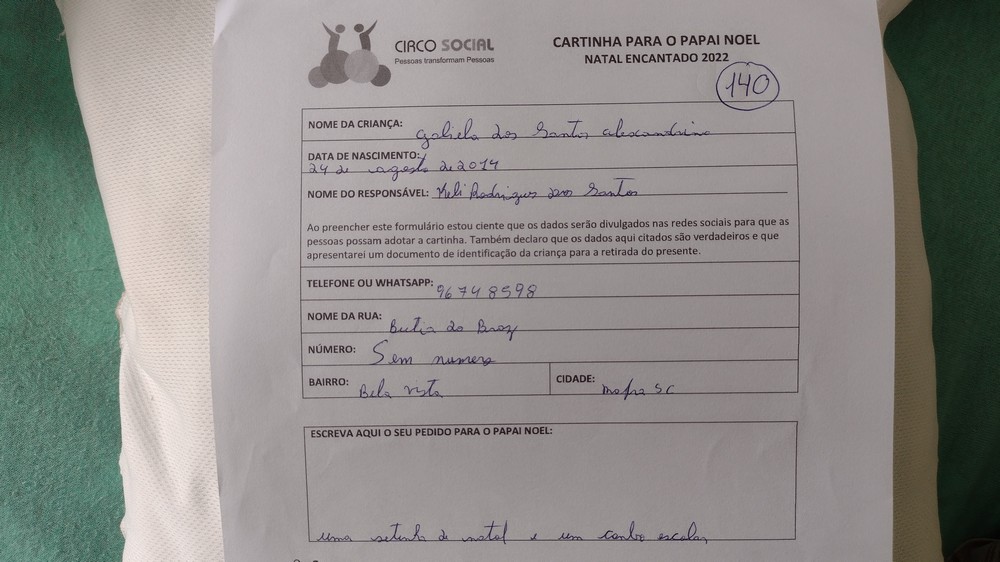 CIRCO SOCIAL
Pessoas transformam Pessoas
CARTINHA PARA O PAPAI NOEL
NATAL ENCANTADO 2022
140
NOME DA CRIANÇA: Gabiela dos Santos alexandrino
DATA DE NASCIMENTO:
24 de agosto de 2014
NOME DO RESPONSÁVEL: Keli Rodrigues dos Santos
Ao preencher este formulário estou ciente que os dados serão divulgados nas redes sociais para que as
pessoas possam adotar a cartinha. Também declaro que os dados aqui citados são verdadeiros e que
apresentarei um documento de identificação da criança para a retirada do presente.
TELEFONE OU WHATSAPP: 96748598
NOME DA RUA:
NÚMERO: Sem numero
BAIRRO: Bela vista
CIDADE: mafra SC
ESCREVA AQUI O SEU PEDIDO PARA O PAPAI NOEL:
uma setinha de natal e um escolar